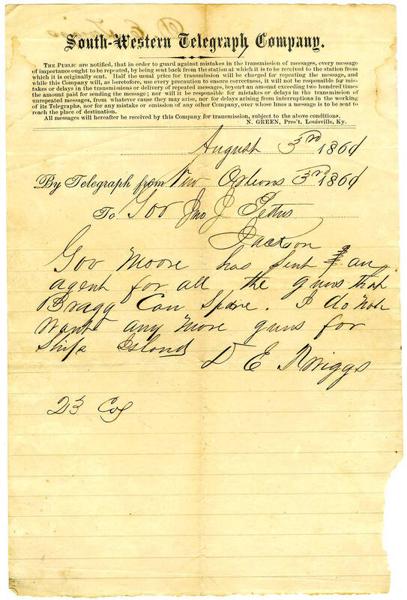 South-Western Telegraph Company.
The Public are notified, that in order to guard against mistakes in the transmission of messages, every message
of importance ought to be repeated, by being sent back from the station at which it is to be received to the station from
which it is originally sent. Half the usual price for transmission will be charged for repeating the message, and
while this Company will, as heretofore, use every precaution to ensure correctness, it will not be responsible for mis-
takes or delays in the transmissions or delivery of repeated messages, beyond an amount exceeding two hundred times
the amount paid for sending the message; nor will it be responsible for mistakes or delays in the transmission of
unrepeated messages, from whatever cause they may arise, nor for delays arising from interruptions in the working
of its Telegraphs, nor for any mistake or omission of any other Company, over whose lines a message is to be sent to
reach the place of destination.
All messages will hereafter be received by this Company for transmission, subject to the above conditions.
N. GREEN, Pres't, Louisville, Ky.
August 3rd 1861
By Telegraph from New Orleans 3rd 1861
To Gov Jno J Pettus
Jackson
Gov Moore has sent an
agent for all the guns that
Bragg can spare. I do not
want any more guns for
Ship Island
D E Twiggs
23 Col